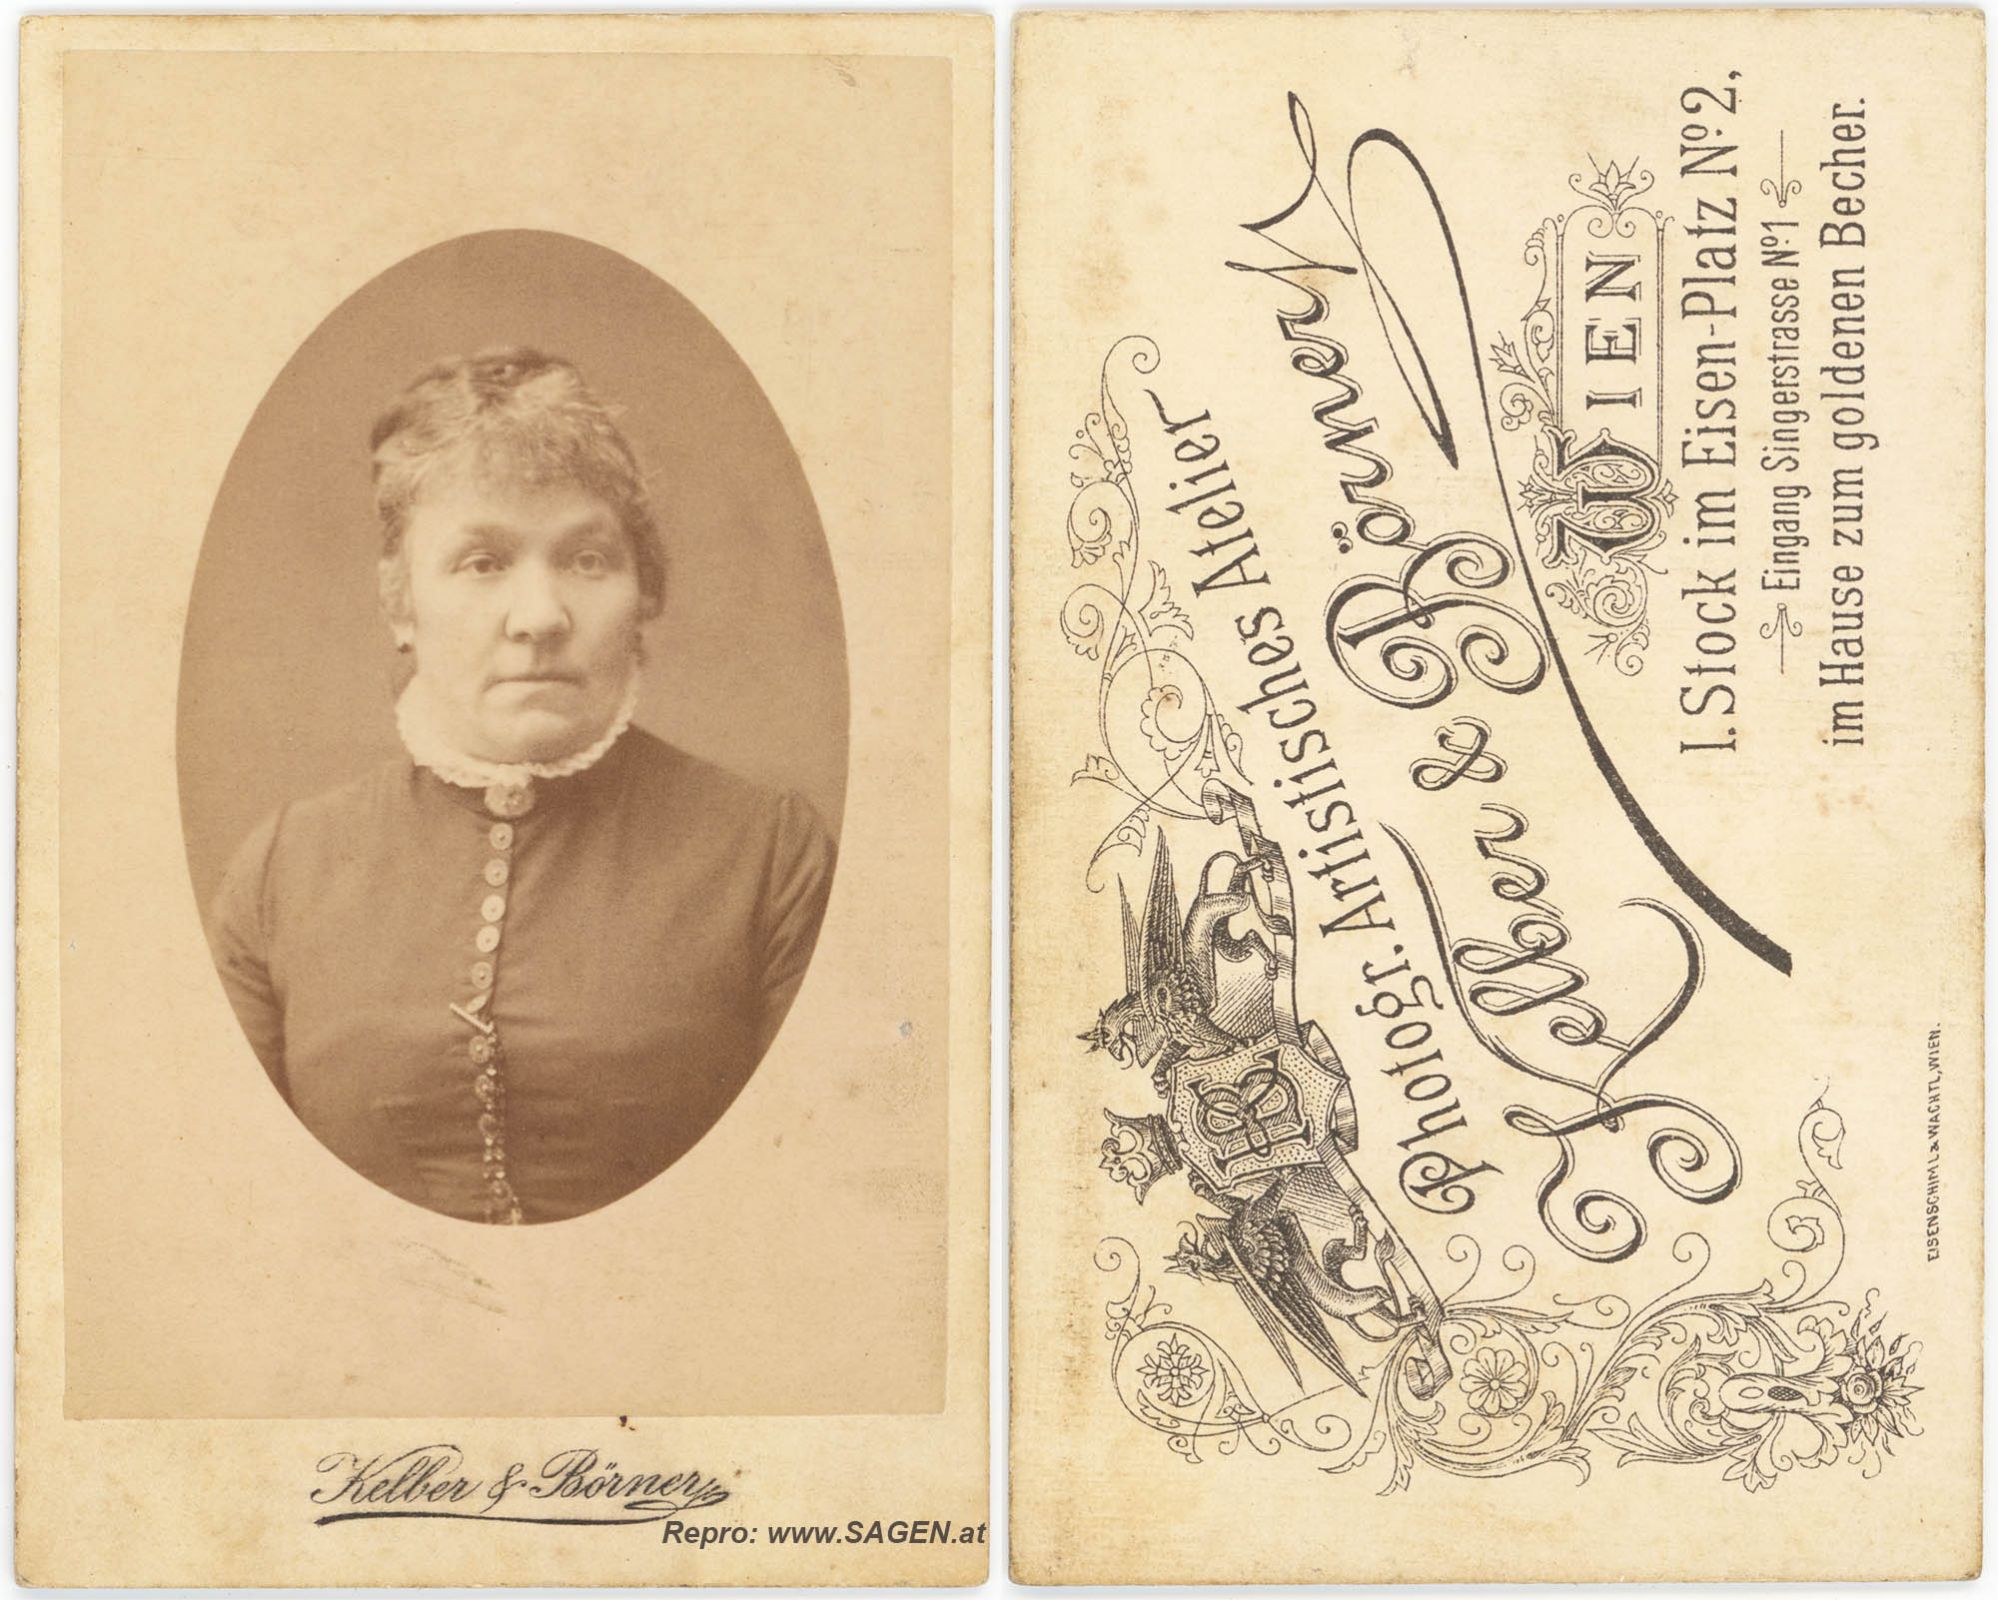 Kelber & Börner
Repro: www.SAGEN.at
Photogr. Artistisches Atelier
Kelber & Börner
WIEN
I. Stock im Eisen-Platz No. 2,
Eingang Singerstrasse No. 1
im Hause zum goldenen Becher.
EISENSCHIML & WACHTL, WIEN.